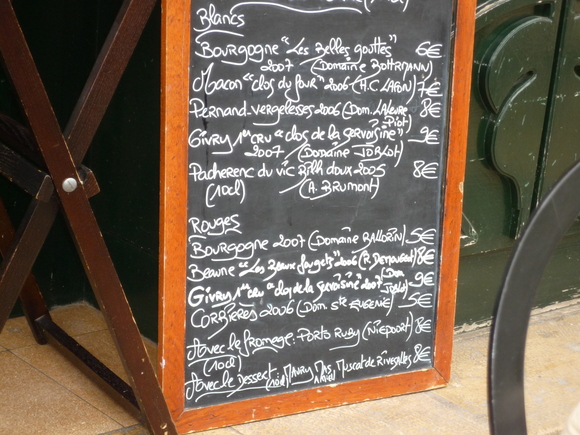 Blancs
Bourgogne "Les Belles gouttes" 6€
2007 (Domaine Bohrmann)
Macon "clos du four" 2006 (H.C. LAFON) 7€
Pernand-vergelesses 2006 (Dom. Laleure Piot) 8€
Givry 1er cru "clos de la servoisine" 9€
2007 (Domaine JOBLOT)
Pacherenc du vic Bilh doux 2005 8€
(10cl) (A. BRUMONT)
Rouges
Bourgogne 2007 (Domaine BALLORIN) 5€
Beaune 2006 8€
Givry 1er cru "clos de la servoisine" 2007 (Dom Joblot) 9€
CORBIÈRES 2006 (Dom. Ste EUGÉNIE) 5€
Avec le fromage: PORTO RUBY (NIEPORT) 8€
(10cl)
Avec le Dessert 10cl MAURY MAS AMIEL Muscat de Rivesaltes 8€